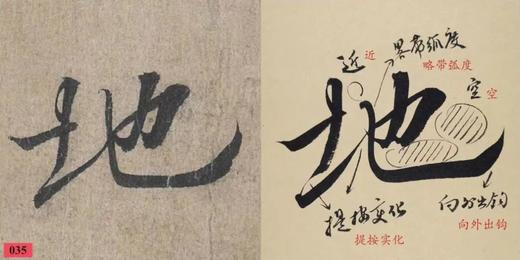 地
035
近 近
畧带弧度
略带弧度
空 空
地
提按变化
提按实化
向外出钩
向外出钩